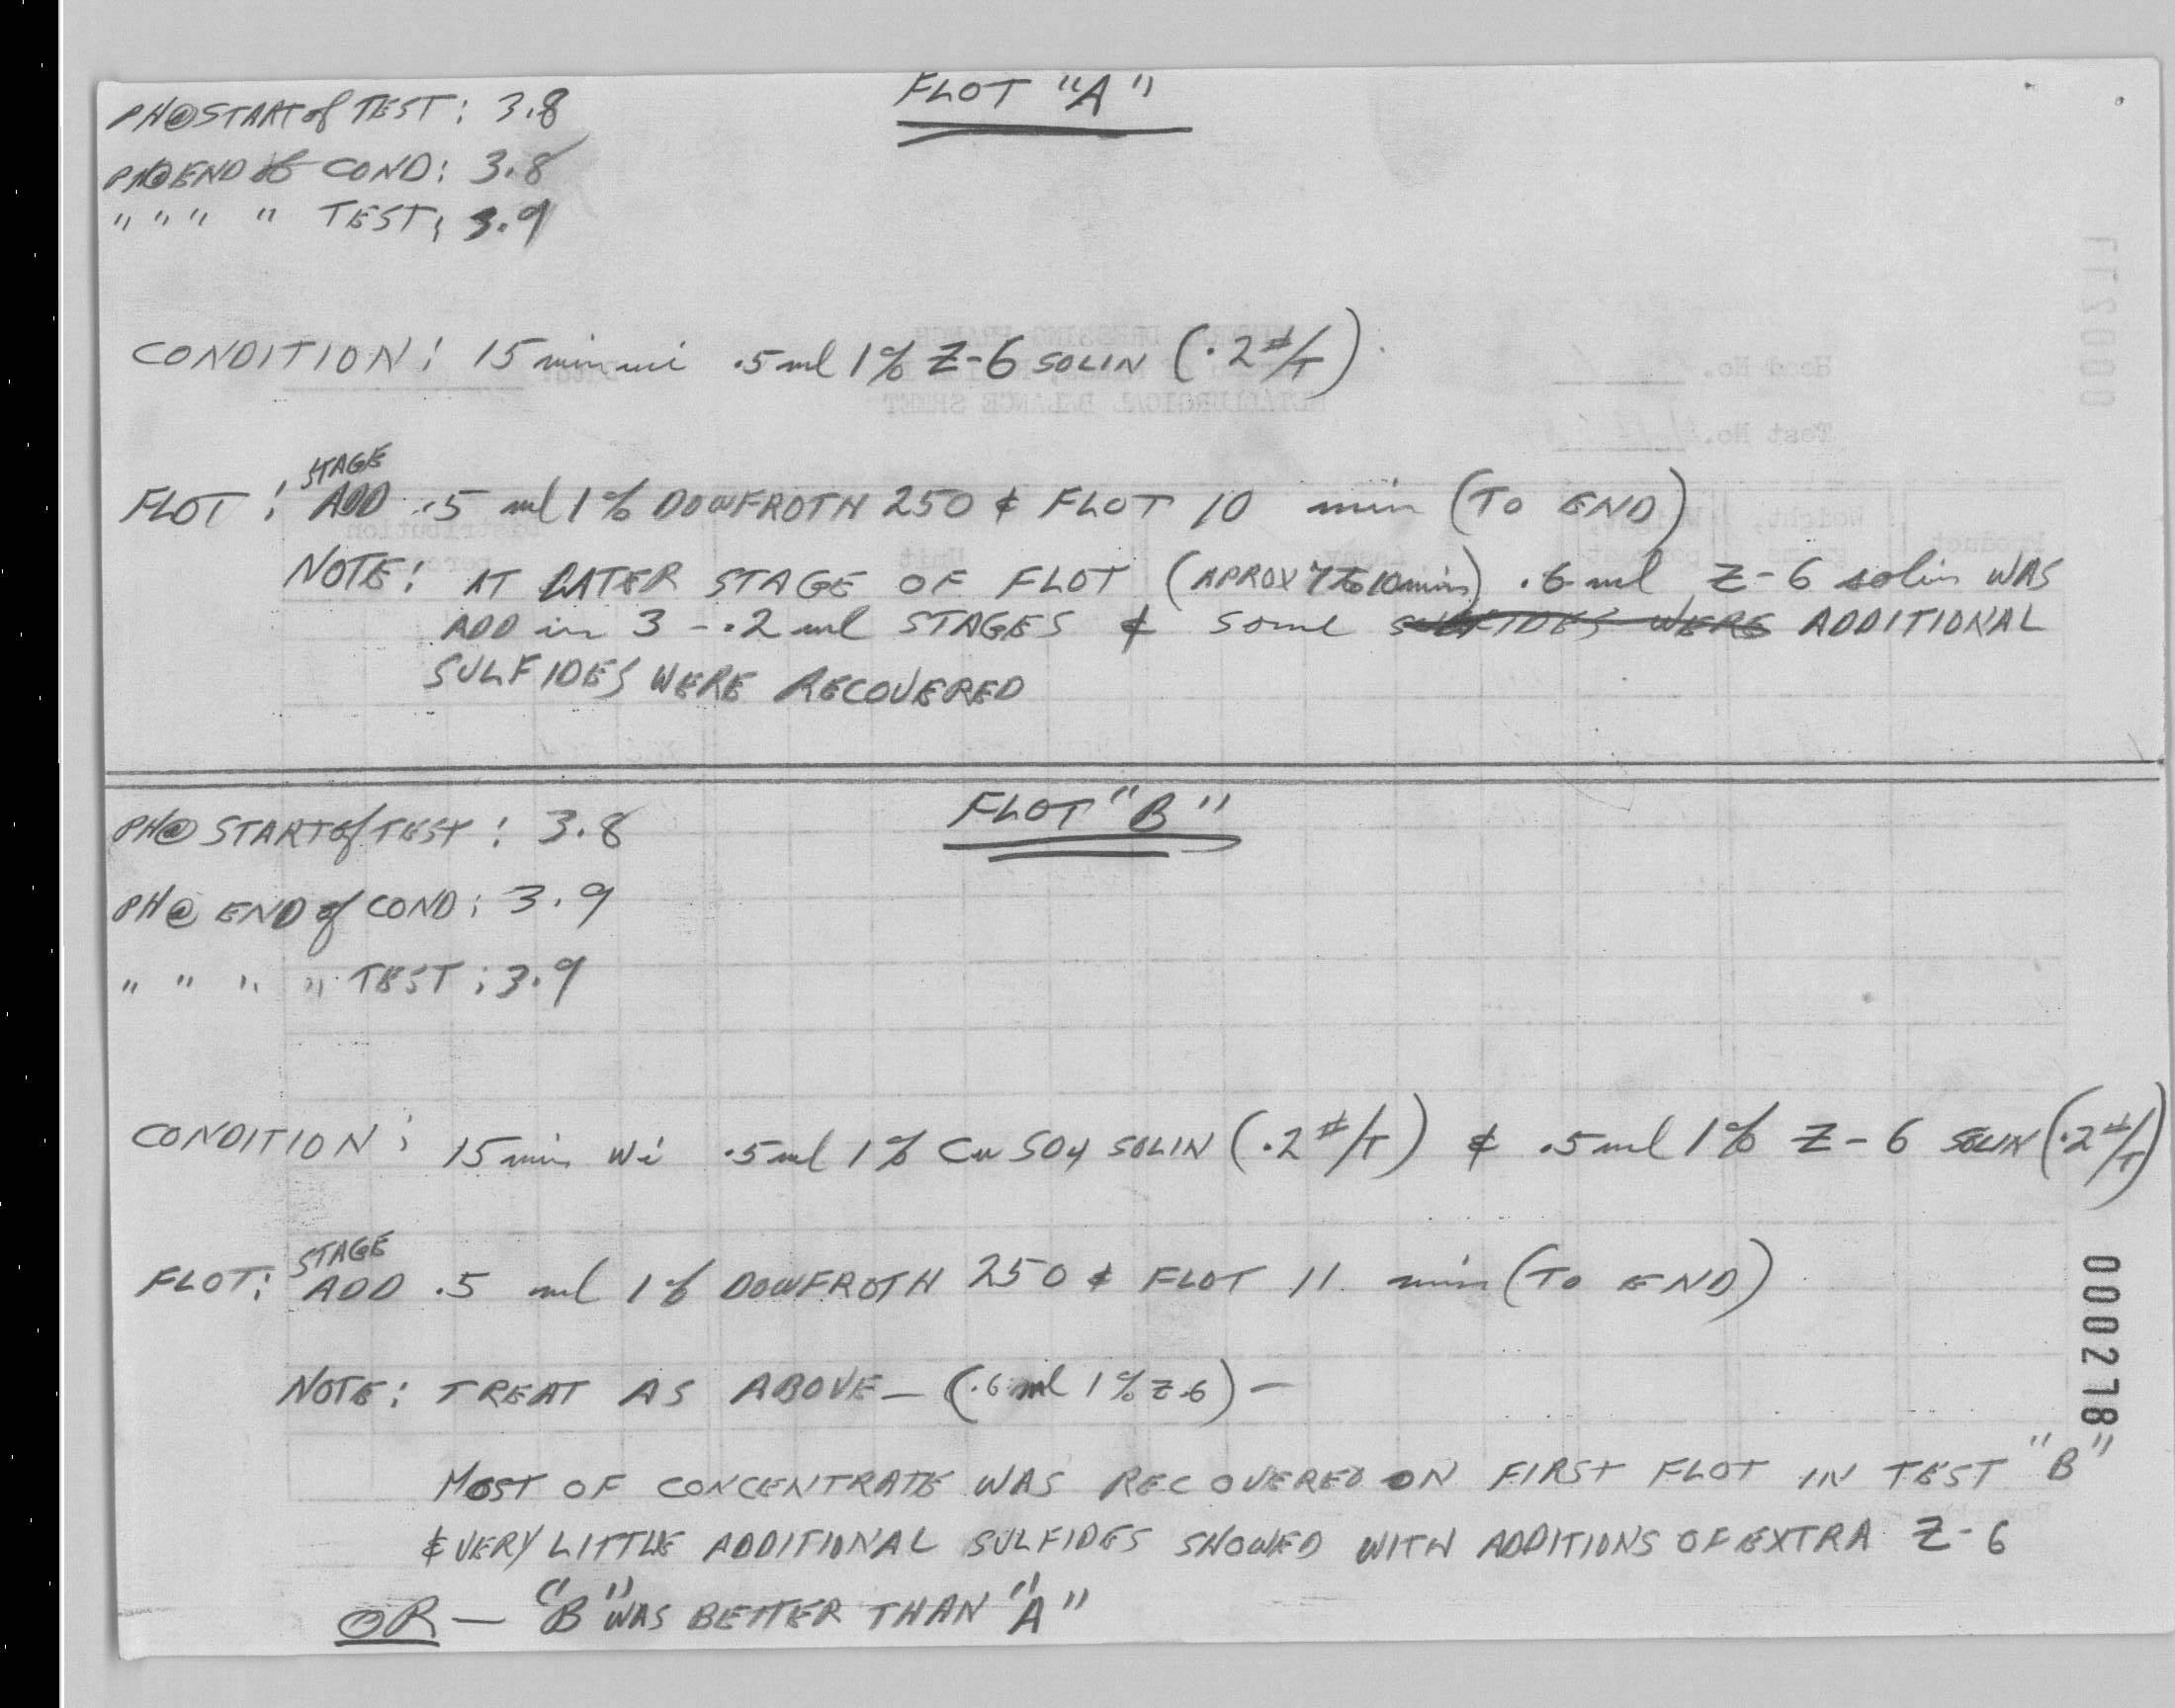 FLOT "A"
PH@START of TEST: 3.8
PH@END of COND: 3.8
" " " " TEST: 3.9
CONDITION: 15 min wi .5 ml 1% Z-6 SOLIN (.2#/T)
STAGE
FLOT: ADD .5 ml 1% DOWFROTH 250 & FLOT 10 min (TO END)
NOTE: AT LATER STAGE OF FLOT (APROX 7 TO 10 min) .6 ml Z-6 solin WAS
ADD in 3 - .2 ml STAGES & some SULFIDES WERE ADDITIONAL
SULFIDES WERE RECOVERED
FLOT "B"
PH@ START of TEST: 3.8
PH@ END of COND: 3.9
" " " " TEST: 3.9
CONDITION: 15 min wi .5 ml 1% CuSO4 SOLIN (.2#/T) & .5 ml 1% Z-6 SOLIN (.2#/T)
STAGE
FLOT: ADD .5 ml 1% DOWFROTH 250 & FLOT 11 min (TO END)
NOTE: TREAT AS ABOVE - (.6 ml 1% Z-6) -
MOST OF CONCENTRATE WAS RECOVERED ON FIRST FLOT IN TEST "B"
& VERY LITTLE ADDITIONAL SULFIDES SHOWED WITH ADDITIONS OF EXTRA Z-6
OR - "B" WAS BETTER THAN "A"
000278